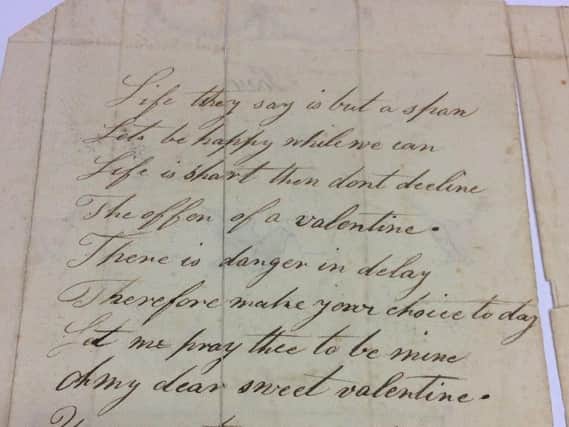 Life they say is but a span
Lets be happy while we can
Life is short then dont decline
The offer of a valentine.
There is danger in delay
Therefore make your choice to day
Let me pray thee to be mine
Oh my dear sweet valentine.